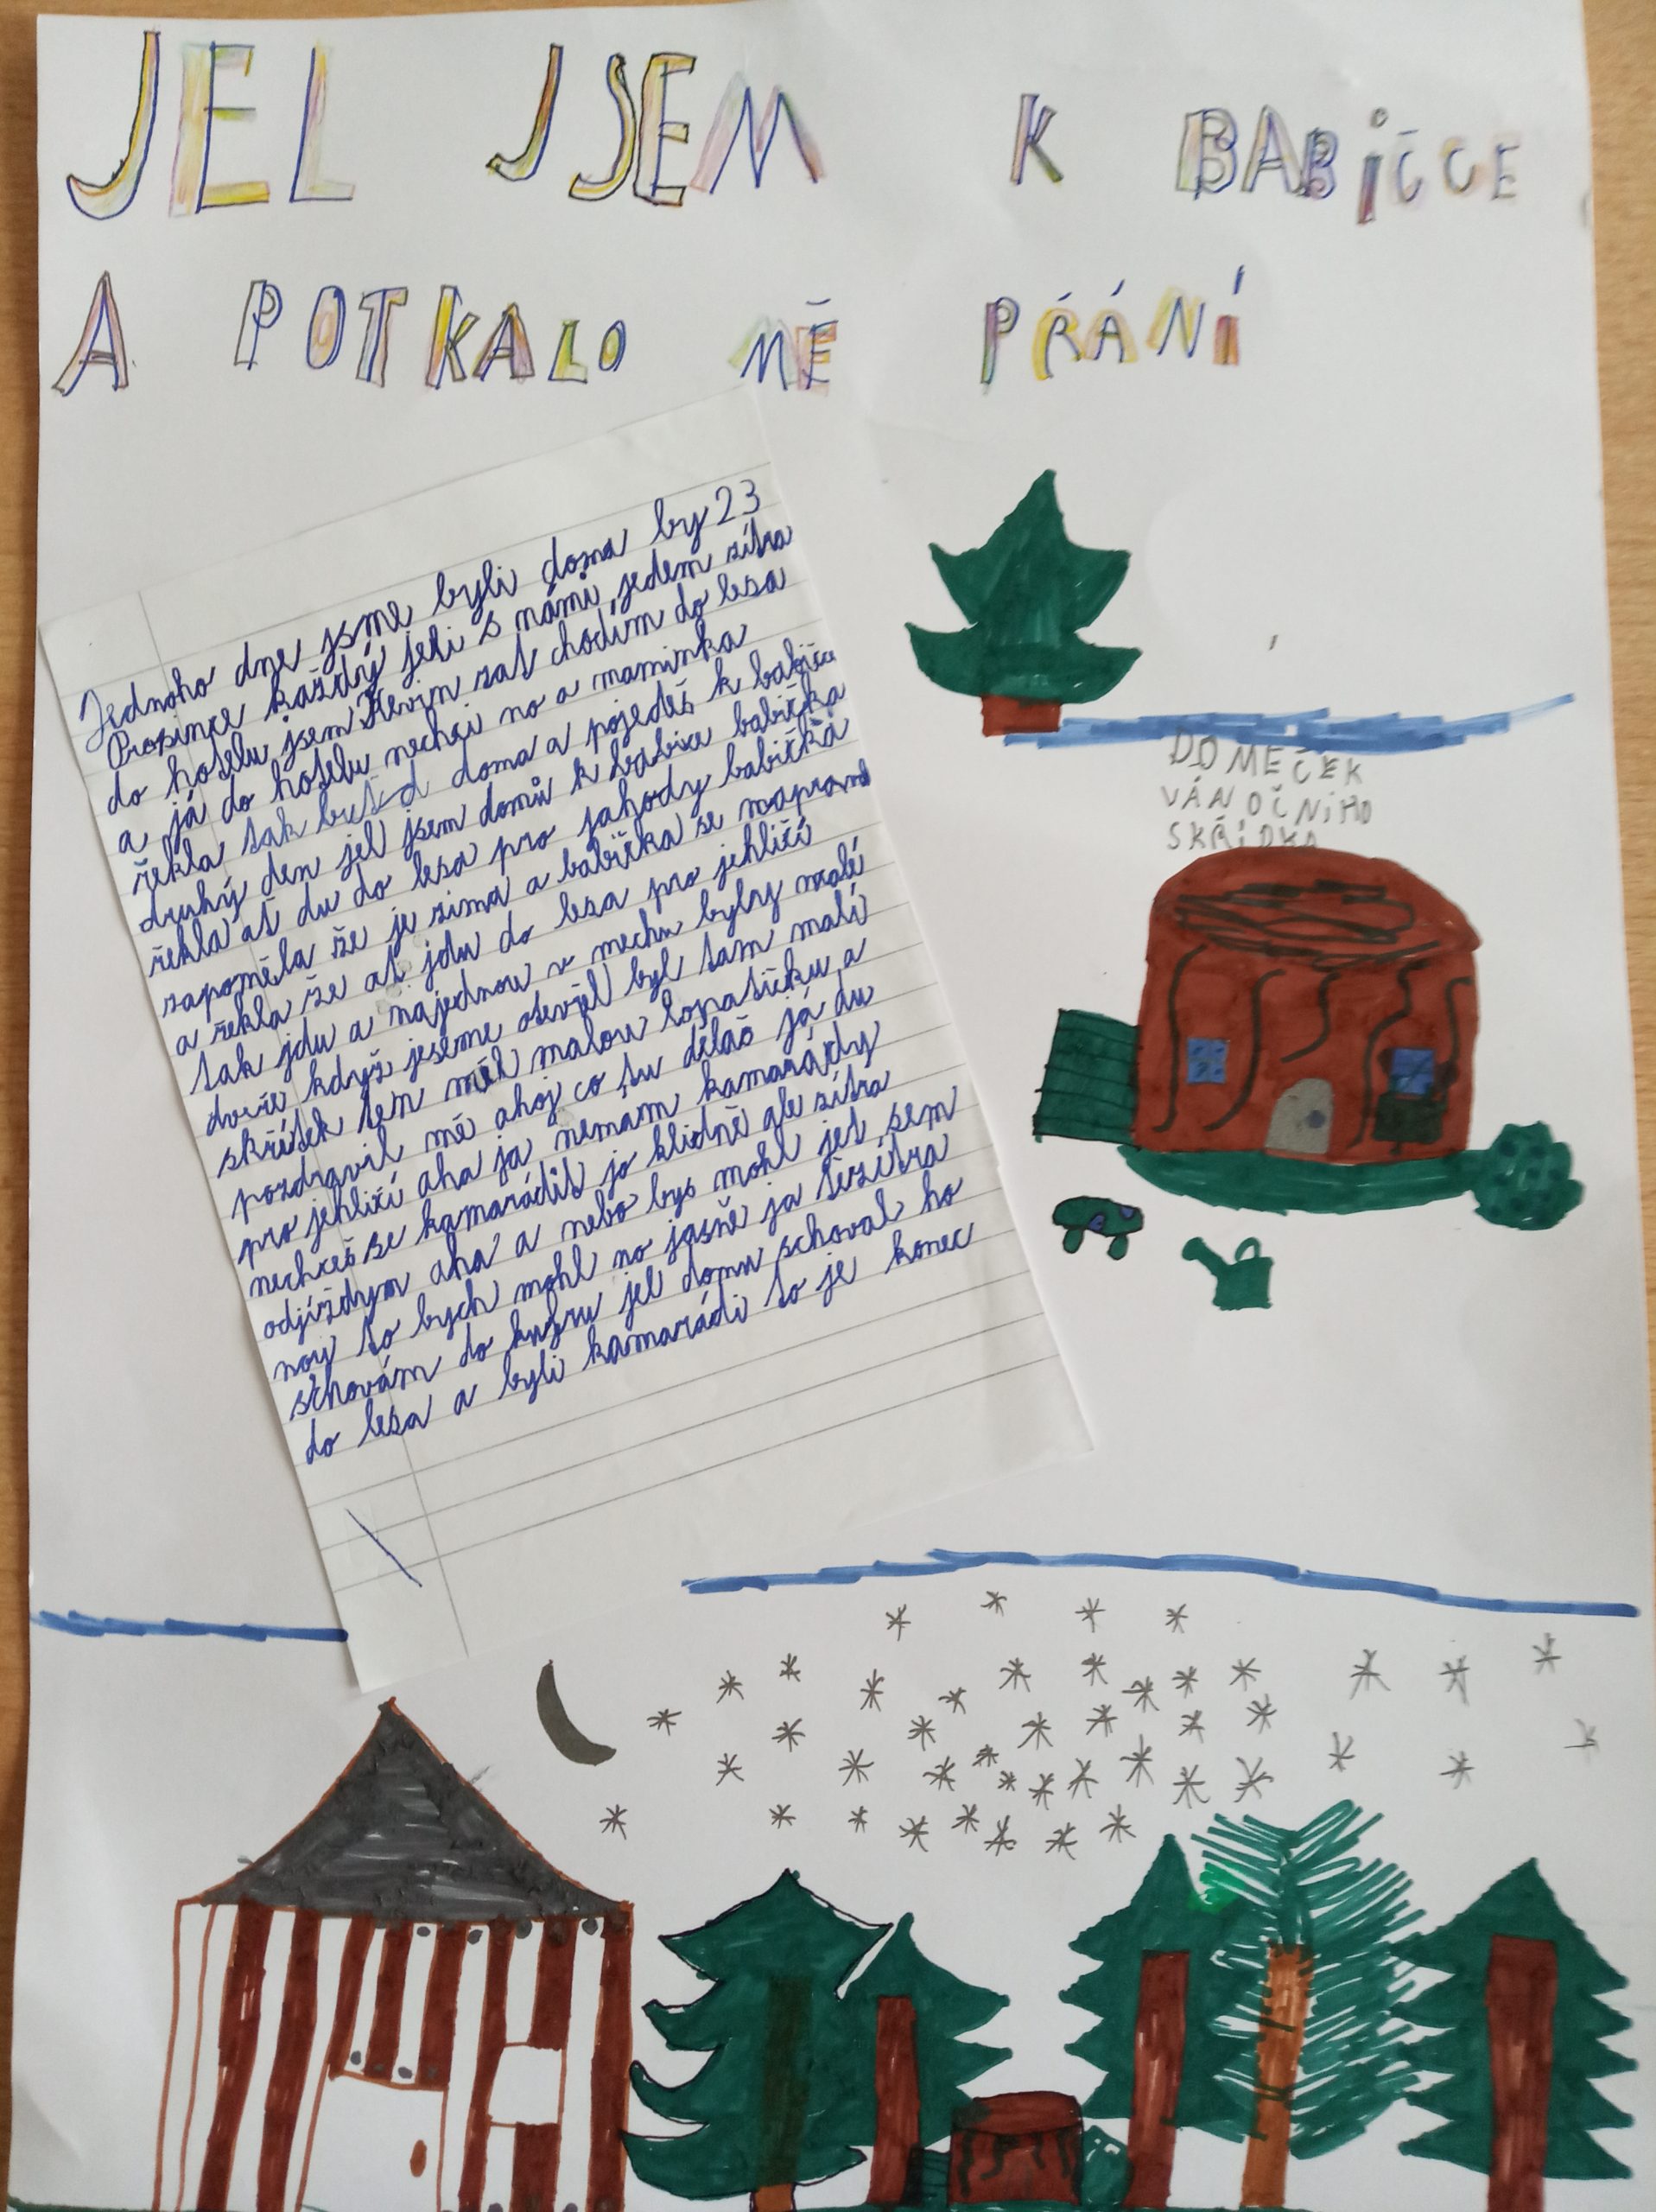 JEL JSEM K BABIČCE
A POTKALO MĚ PŘÁNÍ
Jednoho dne jsme byli doma by 23
Prosince každý jeli s námi jedem zítra
do hotelu jsem Kevin rat chodím do lesa
a já do hotelu nechci no a maminka
řekla tak buď doma a pojedeš k babičce
druhý den jel jsem domů k babice babička
řekla ať du do lesa pro jahody babička
zapoměla že je zima a babička se
a řekla že ať jdu do lesa pro jehličí
tak jdu a najednou v mechu byly malé
dveře když jeseme otevřel byl tam malí
skřítek ten měl malou lopatičku a
pozdravil mě ahoj co tu děláš já du
pro jehličí aha ja nemam kamarády
nechceš se kamarádit jo klidně ale zítra
odjíždym aha a nebo bys mohl jet sem
noy to bych mohl no jasně ja tě zítra
schovám do kufru jel domu schoval ho
do lesa a byli kamarádi to je konec
DOMEČEK
VÁNOČNÍHO
SKŘÍDKA